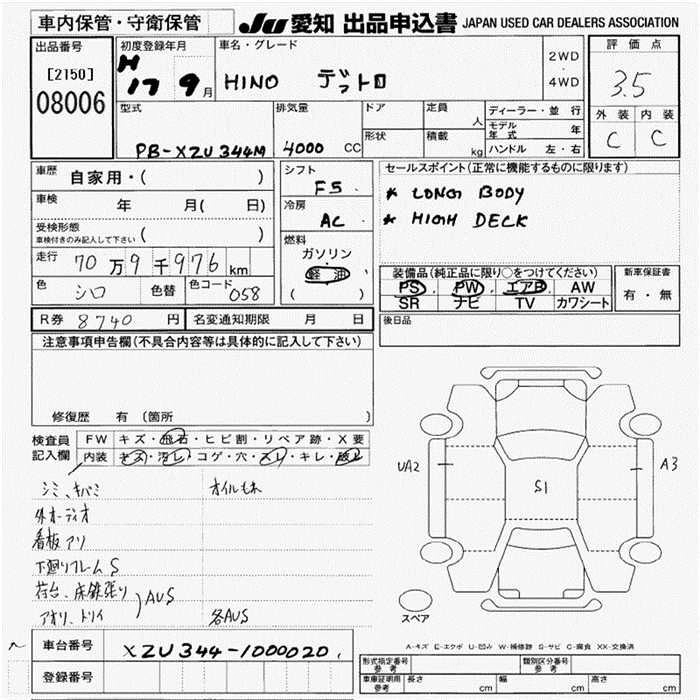 車内保管・守衛保管 JU 愛知 出品申込書 JAPAN USED CAR DEALERS ASSOCIATION
出品番号
[2150]
08006
初度登録年月
H
17 9月
車名・グレード
HINO デュトロ
2WD
・
4WD
評価点
3.5
外装 内装
C C
型式
PB-XZU344M
排気量
4000 CC
ドア
形状
定員 人
積載 kg
ディーラー・並行
モデル年式 年
ハンドル 左・右
車歴 自家用・( )
車検 年 月( 日)
受検形態
車検付きのみ記入して下さい ( )
走行 70万9千976km
色 シロ 色替 色コード 058
シフト
F5
冷房
AC
燃料
ガソリン
軽油
( )
セールスポイント(正常に機能するものに限ります)
* LONG BODY
* HIGH DECK
装備品(純正品に限り○をつけてください)
PS PW エアB AW
SR ナビ TV カワシート
新車保証書
有・無
R券 8740 円 名変通知期限 月 日
後日品
注意事項申告欄(不具合内容等は具体的に記入して下さい)
修復歴 有(箇所 )
検査員記入欄
FW キズ・飛石・ヒビ割・リペア跡・X要
内装 キズ・汚レ・コゲ・穴・スレ・キレ・破レ
シミ、キバミ オイルもれ
外オーディオ
看板アリ
下廻りフレームS
荷台、床鉄張り
アオリ、トリイ AUS 各AUS
UA2 S1 A3
スペア
A-キズ E-エクボ U-凹み W-補修跡 S-サビ C-腐食 XX-交換済
車台番号 XZU344-1000020
登録番号
形式指定番号 参考
類別区分番号 参考
車庫証明用 参考 長さ cm 幅 cm 高さ cm